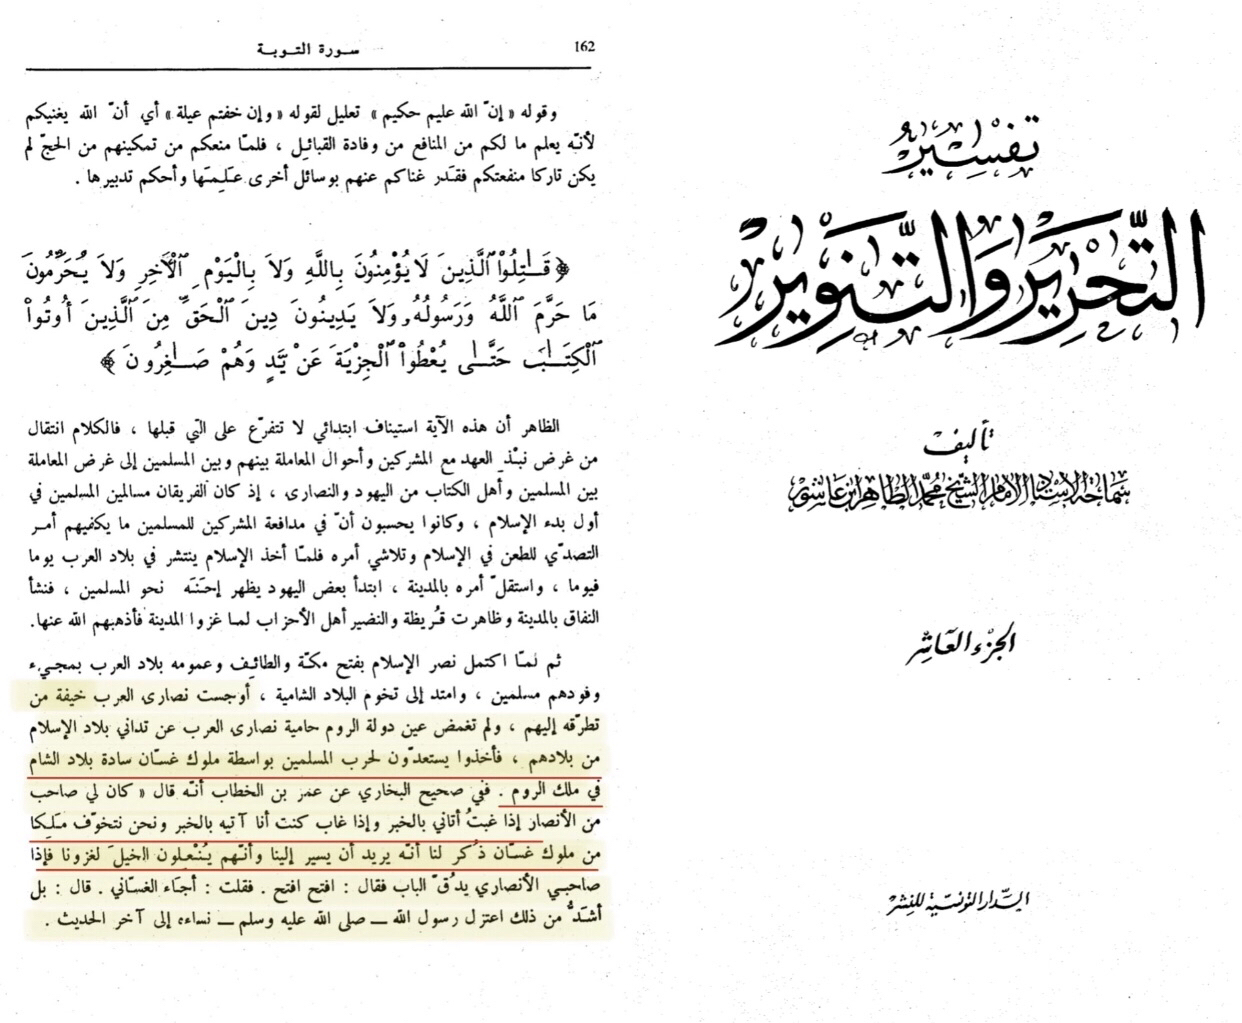 162
سورة التوبة
وقوله « إنّ الله عليم حكيم » تعليل لقوله « وإن خفتم عيلة » أي أنّ الله يغنيكم
لأنّه يعلم ما لكم من المنافع من وفادة القبائل ، فلمّا منعكم من تمكينهم من الحجّ لم
يكن تاركا منفعتكم فقدّر غناكم عنهم بوسائل أخرى علمها وأحكم تدبيرها .
﴿ قَٰتِلُوا۟ ٱلَّذِينَ لَا يُؤْمِنُونَ بِاللَّهِ وَلَا بِالْيَوْمِ ٱلْأَخِرِ وَلَا يُحَرِّمُونَ
مَا حَرَّمَ ٱللَّهُ وَرَسُولُهُۥ وَلَا يَدِينُونَ دِينَ ٱلْحَقِّ مِنَ ٱلَّذِينَ أُوتُوا۟
ٱلْكِتَٰبَ حَتَّىٰ يُعْطُوا۟ ٱلْجِزْيَةَ عَنْ يَّدٍ وَهُمْ صَٰغِرُونَ ﴾
الظاهر أن هذه الآية استيناف ابتدائي لا تتفرّع على التي قبلها ، فالكلام انتقال
من غرض نبذ العهد مع المشركين وأحوال المعاملة بينهم وبين المسلمين إلى غرض المعاملة
بين المسلمين وأهل الكتاب من اليهود والنصارى ، إذ كان الفريقان مسالمين المسلمين في
أول بدء الإسلام ، وكانوا يحسبون أنّ في مدافعة المشركين للمسلمين ما يكفيهم أمر
التصدّي للطعن في الإسلام وتلاشي أمره فلمّا أخذ الإسلام ينتشر في بلاد العرب يوما
فيوما ، واستقلّ أمره بالمدينة ، ابتدأ بعض اليهود يظهر إحَنَه نحو المسلمين ، فنشأ
النفاق بالمدينة وظاهرت قُريظة والنضير أهل الأحزاب لما غزوا المدينة فأذهبهم الله عنها.
ثم لمّا اكتمل نصر الإسلام بفتح مكّة والطائف وعمومه بلاد العرب بمجيء
وفودهم مسلمين ، وامتد إلى تخوم البلاد الشامية ، أوجست نصارى العرب خيفة من
تطرّقه إليهم ، ولم تغمض عين دولة الروم حامية نصارى العرب عن تداني بلاد الإسلام
من بلادهم ، فأخذوا يستعدّون لحرب المسلمين بواسطة ملوك غسّان سادة بلاد الشام
في ملك الروم . ففي صحيح البخاري عن عمر بن الخطاب أنّه قال « كان لي صاحب
من الأنصار إذا غبتُ أتاني بالخبر وإذا غاب كنت أنا آتيه بالخبر ونحن نتخوّف مَلِكا
من ملوك غسّان ذُكر لنا أنّه يريد أن يسير إلينا وأنّهم يُنْعِلون الخيلَ لغزونا فإذا
صاحبي الأنصاري يدُقّ الباب فقال : افتح افتح . فقلت : أجاء الغسّاني . قال : بل
أشدُّ من ذلك اعتزل رسول الله ــ صلى الله عليه وسلم ــ نساءه إلى آخر الحديث .
تفسير
التحرير والتنوير
تأليف
سماحة الأستاذ الإمام الشيخ محمد الطاهر ابن عاشور
الجزء العاشر
الدار التونسية للنشر